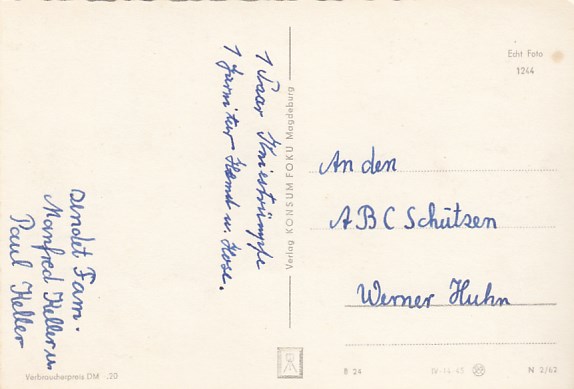 1 Paar Kniestrümpfe
1 Garnitur Hemd u. Hose.
sendet Fam.
Manfred Keller u.
Paul Keller
Verbraucherpreis DM -.20
Verlag KONSUM FOKU Magdeburg
Echt Foto
1244
An den
ABC Schützen
Werner Huhn
B 24
IV-14-45
N 2/62